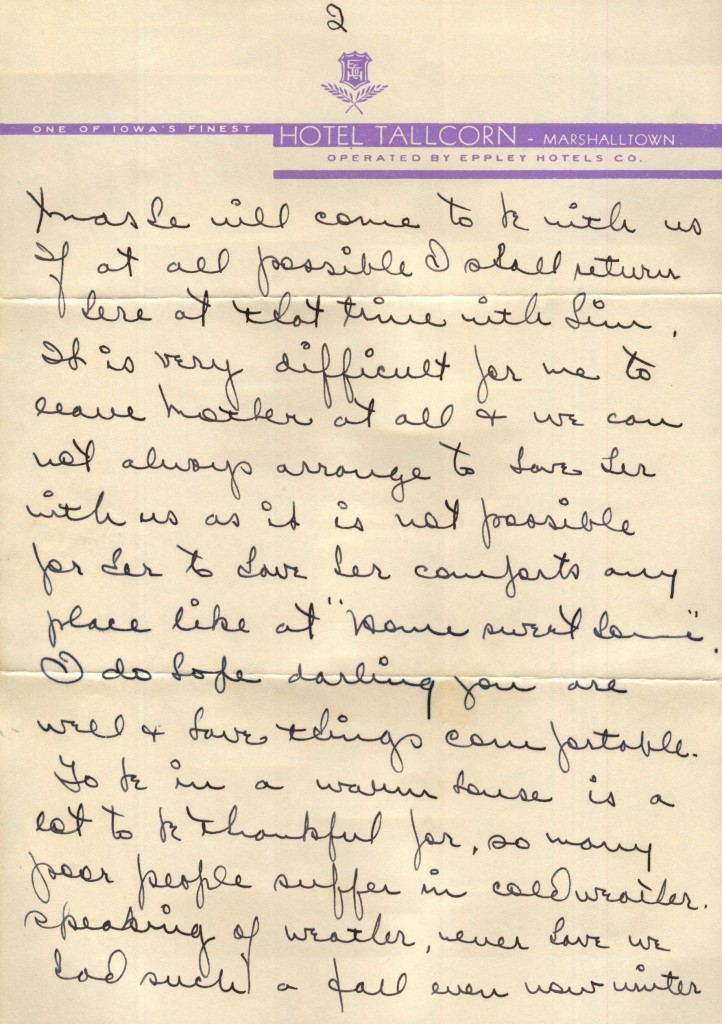 2
ONE OF IOWA'S FINEST
HOTEL TALLCORN - MARSHALLTOWN
OPERATED BY EPPLEY HOTELS CO.
Xmas he will come to be with us
If at all possible I shall return
here at that time with him.
It is very difficult for me to
leave Mother at all & we can
not always arrange to have her
with us as it is not possible
for her to have her comforts any
place like at "home sweet home".
I do hope darling you are
well & have things comfortable.
To be in a warm house is a
lot to be thankful for, so many
poor people suffer in cold weather.
speaking of weather, never have we
had such a fall even now winter